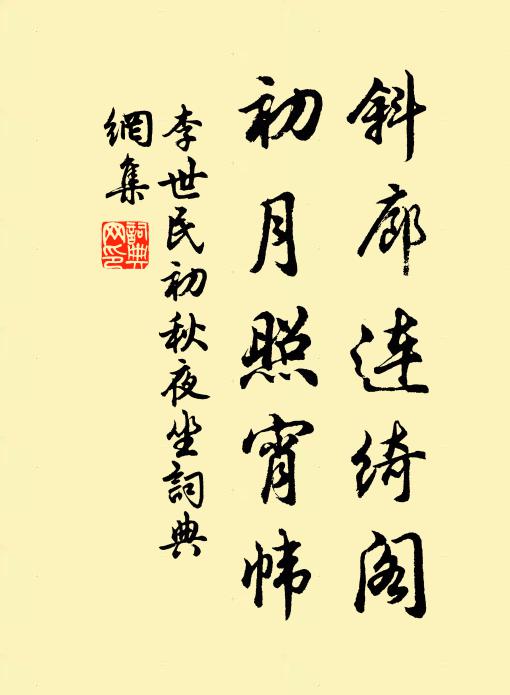 斜廊連綺阁
初月照宵幃
李世民初秋夜坐詞典
網集
詞典
网印